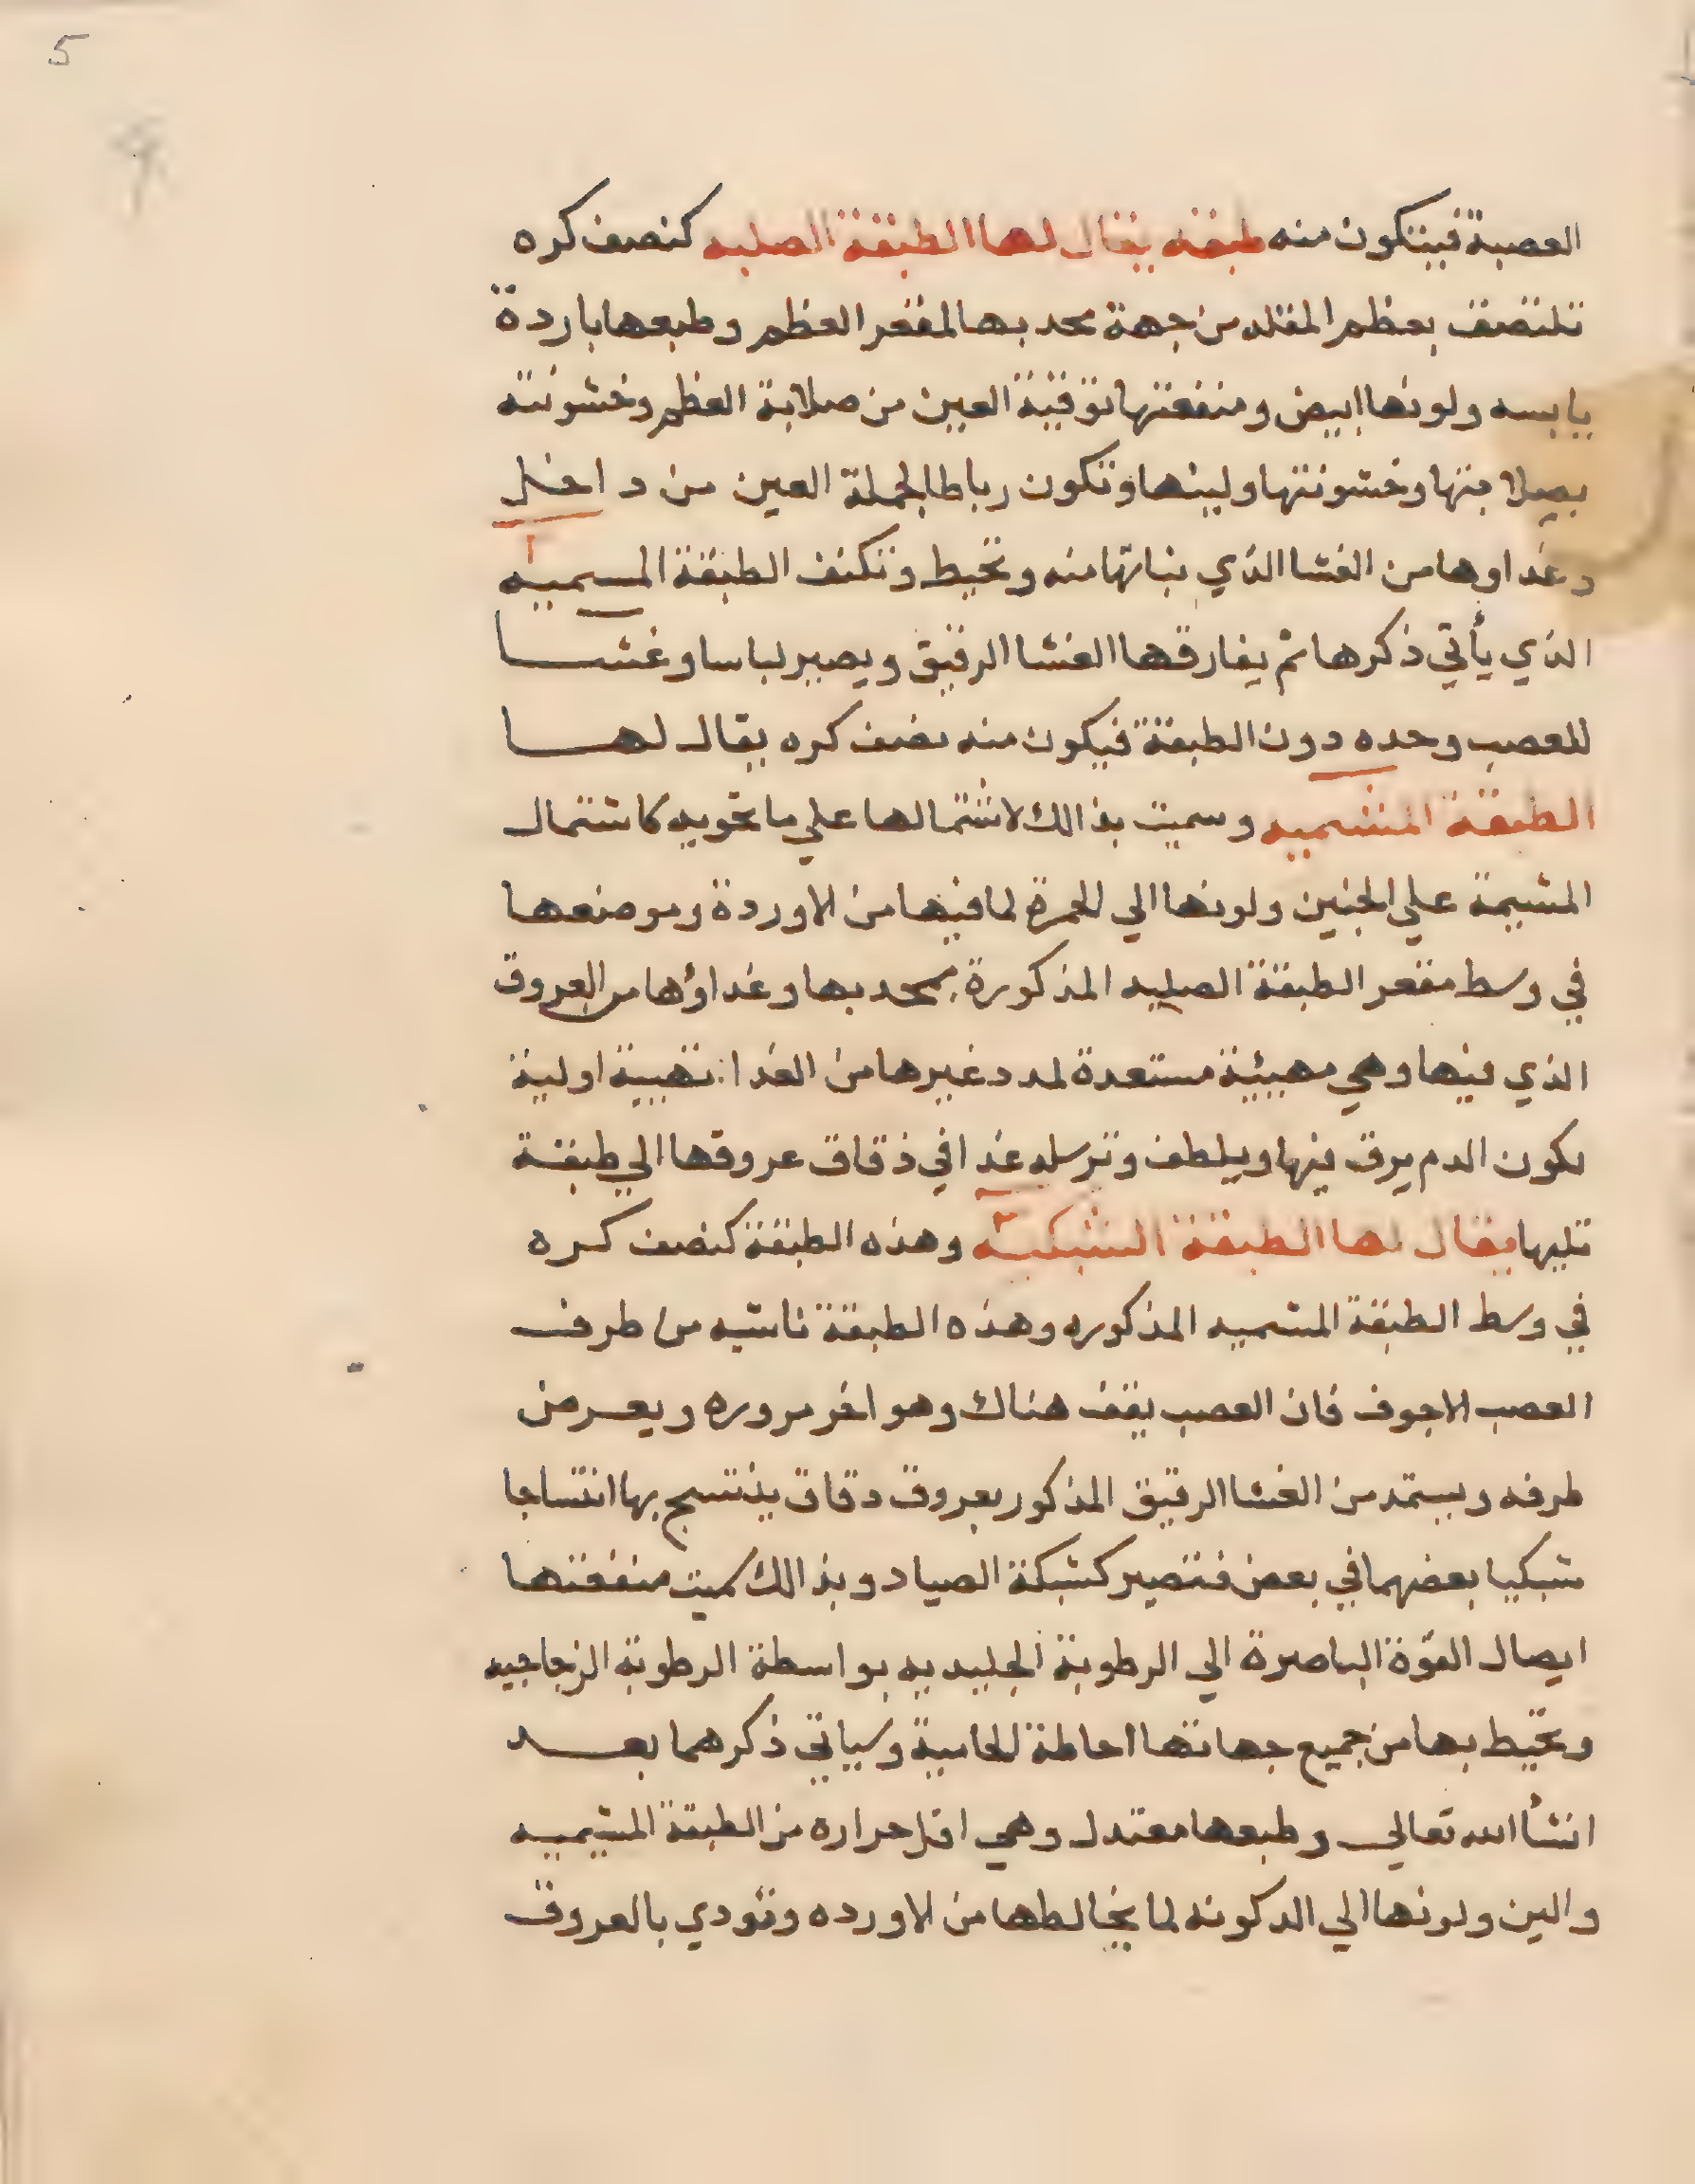 5
العصبة فيتكون منه طبقه يقال لها الطبقة الصلبه كنصف كره
تلتصق بعظم المقله من جهة محدبها لمقعر العظم وطبعها باردة
يابسه ولونها ابيض ومنفعتها توقية العين من صلابة العظم وخشونته
بصلابتها وخشونتها ولينها وتكون رباطا لجملة العين من داخل
وغداوها من الغشا الذي نباتها منه وتحيط وتكنف الطبقة المسميه
الذي يأتي ذكرها ثم يفارقها الغشا الرقيق ويصير لباسا وغشا
للعصب وحده دون الطبقة فيكون منه نصف كره يقال لها
الطبقة المشميه وسميت بذالك لاشتمالها علي ما تحويه كاشتمال
المشيمة علي الجنين ولونها الي الحمرة لما فيها من الاوردة وموضعها
في وسط مقعر الطبقة الصلبه المذكورة بمحدبها وغداؤها من العروق
الذي فيها وهي مهيئة مستعدة لمدد غيرها من الغدا تهيية اولية
يكون الدم يرق فيها ويلطف وترسله غدا في ذقاق عروقها الي طبقة
تليها يقال لها الطبقة الشبكيه وهذه الطبقة كنصف كره
في وسط الطبقة المشميه المذكوره وهذه الطبقة ناشيه من طرف
العصب الاجوف فان العصب يقف هناك وهو اخر مروره ويعرض
طرفه ويستمد من الغشا الرقيق المذكور بعروق دقاق ينتسج بها انتساجا
شبكيا بعضهما في بعض فتصير كشبكة الصياد وبذالك سميت منفعتها
ايصال القوّة الباصرة الي الرطوبة الجليديه بواسطة الرطوبة الزجاجيه
وتحيط بها من جميع جهاتها احاطة لحامية وسياتي ذكرهما بعد
انشأ الله تعالي وطبعها معتدل وهي اقل حراره من الطبقة المشيميه
والين ولونها الي الدكونه لما يخالطها من الاورده وتودي بالعروق